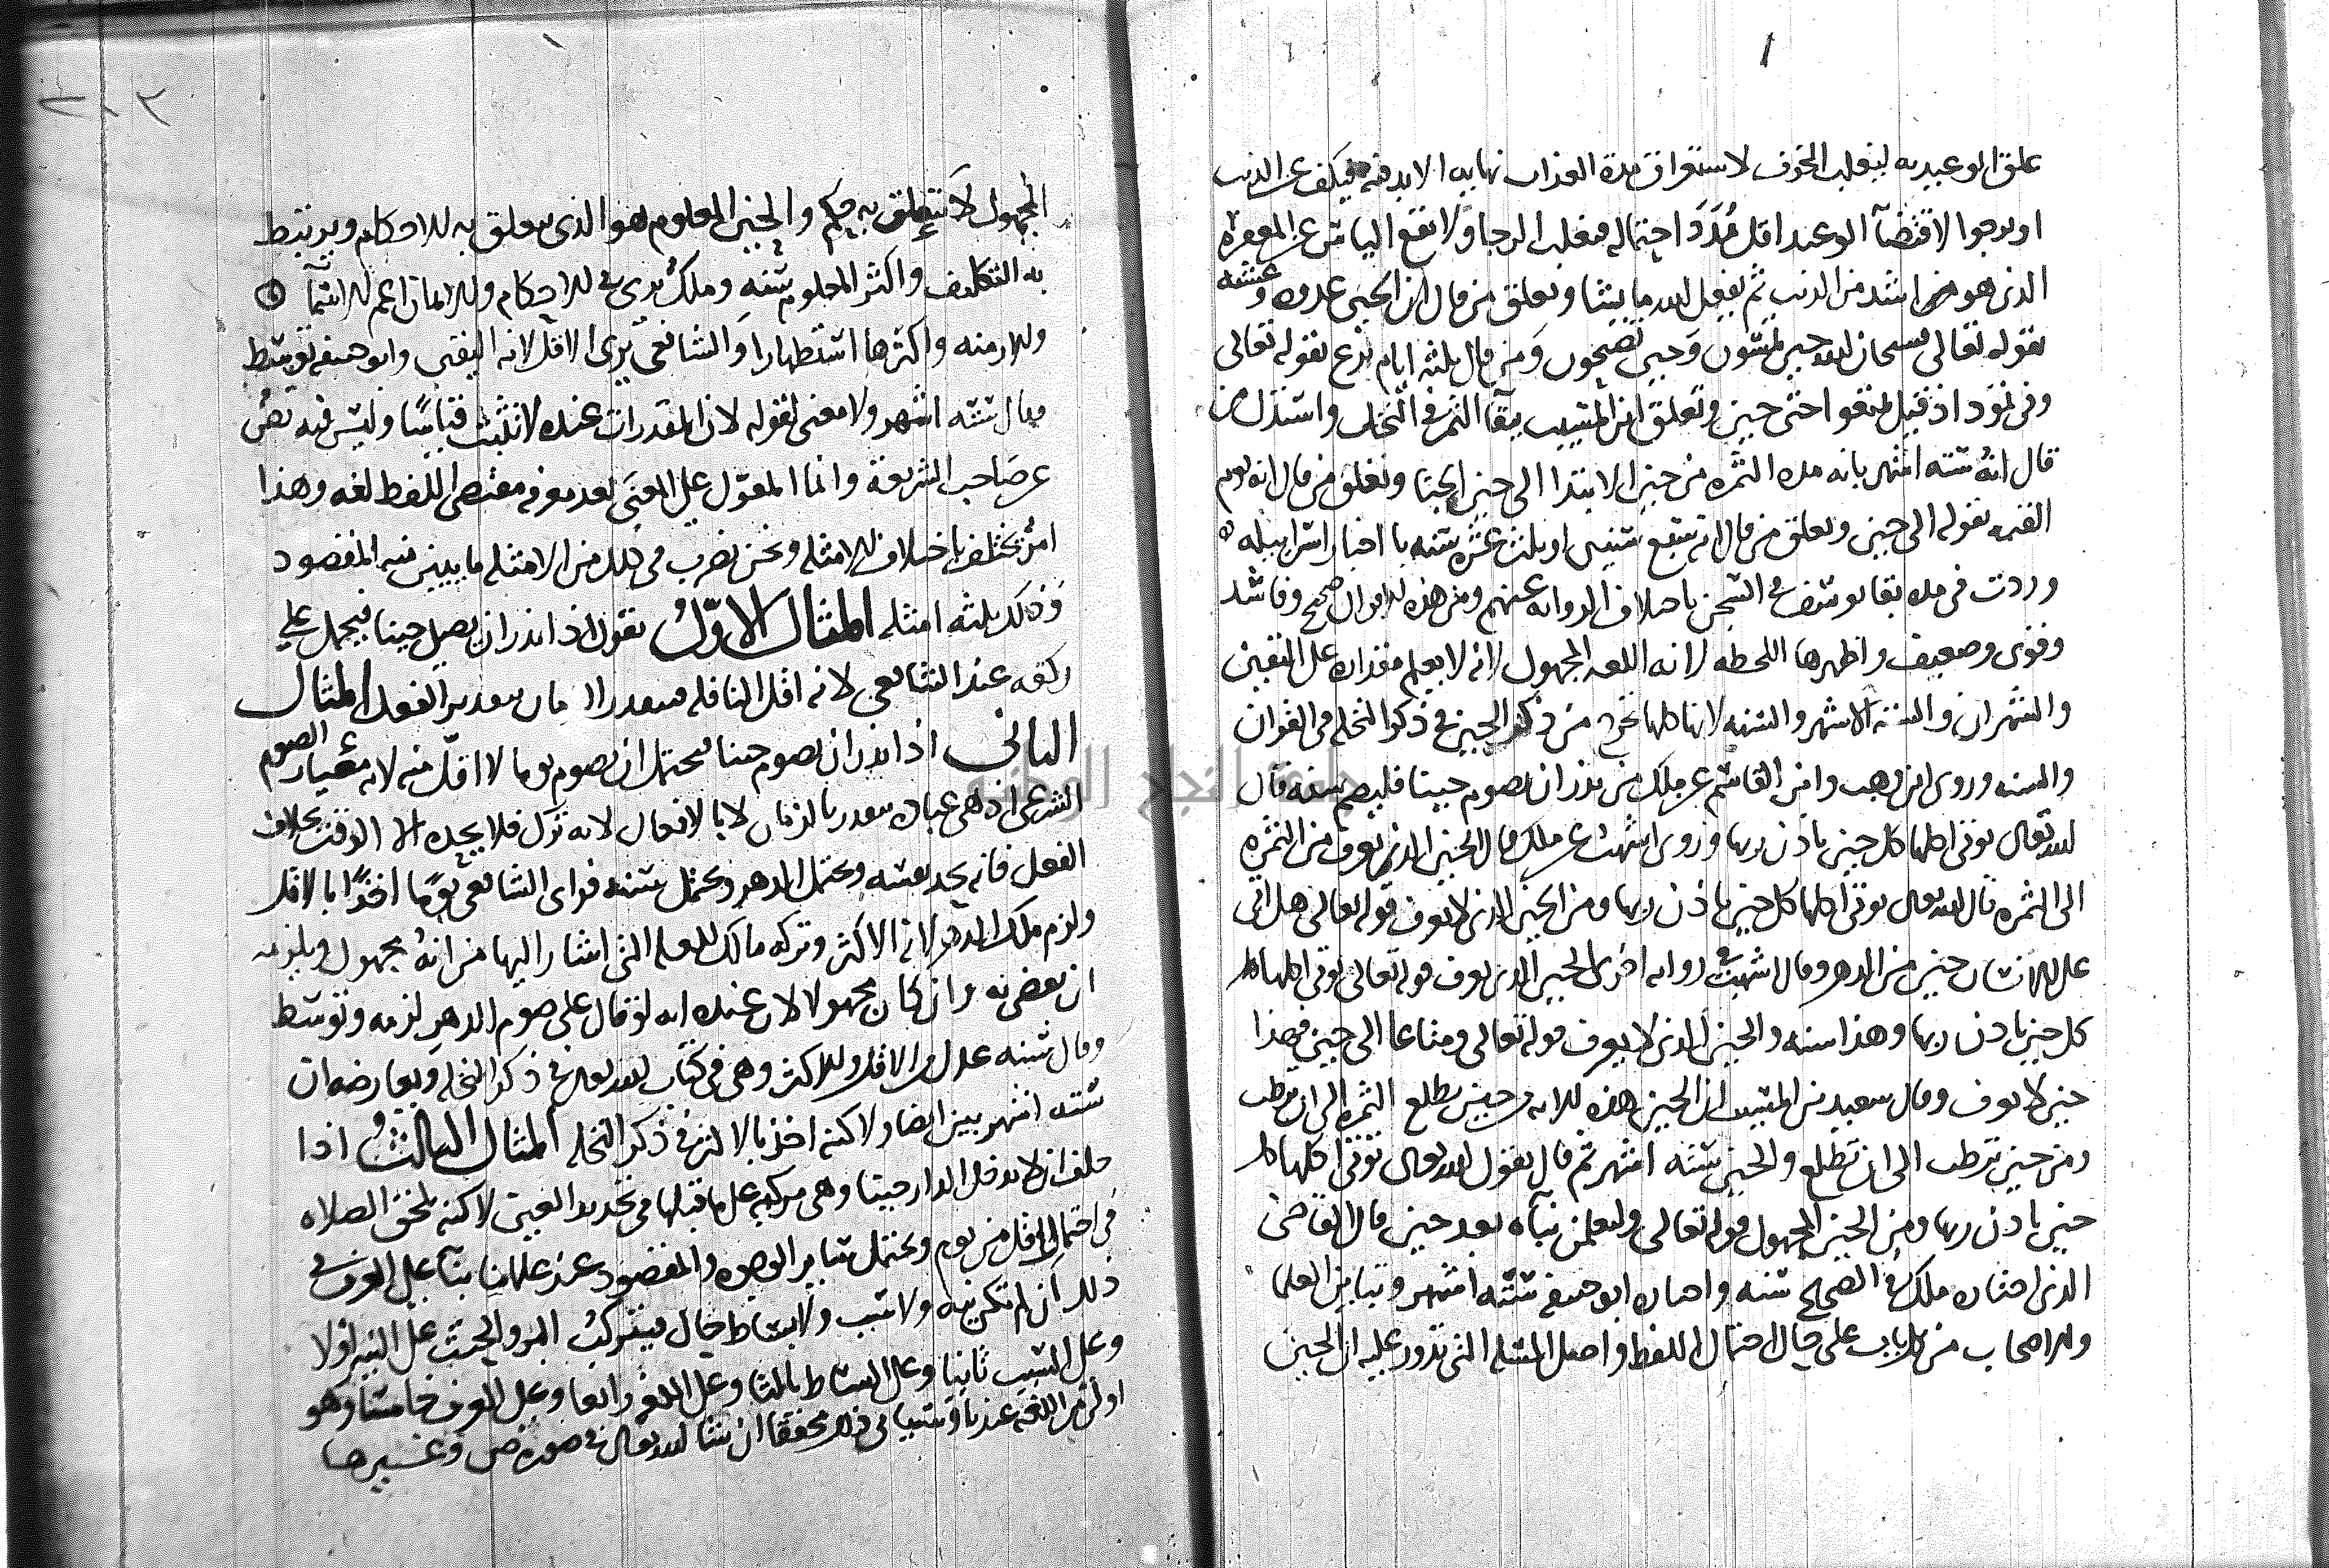 ١
علق الوعيد به ليغلب الخوف لاستغراق مدة العذاب نهاية الابد فيه فيكف عن الذنب
او يرجوا لاقتضآ الوعيد اقل مُدَد احتماله فيغلب الرجا ولا يقع الياس عن المغفرة
الذى هو اشد من الذنب ثم يفعل الله ما يشا وتعلق من قال ان الحين غدوه وعشيه
بقوله تعالى فسبحان الله حين تمسون وحين تصبحون ومن قال ثلثه ايام نزع بقوله تعالى
وفى ثمود اذ قيل لهم تمتعوا حتى حين وتعلق ابن المسيب ببقآ الثمر فى النخل واستدل من
قال انه سته اشهر بانه مده الثمره من حين الابتدا الى حين الجنا وتعلق من قال انه يوم
القيمه بقوله الى حين وتعلق من قال انه سبع سنين او ثلث عشره سنه باخبار اسراييليه
وردت فى مده بقا يوسف فى السجن باختلاف الروايه عنهم ومن هذه الاقوال صحيح وفاسد
وقوى وضعيف واظهرها اللحظه لانه اللغه المجهول لانه لا يعلم مقداره على التعيين
والشهران والسته الاشهر والسنه لانها كلها تخرج من ذكر الحين فى ذكر النخله فى القران
والسنه وروى ابن وهب وابن القاسم عن ملك من نذر ان يصوم حينا فليصم سنه قال
الله تعالى توتى اكلها كل حين باذن ربها وروى اشهب عن ملك قال الحين الذى يعرف من الثمره
الى الثمره قال الله تعالى توتى اكلها كل حين باذن ربها ومن الحين الذى لا يعرف قوله تعالى هل اتى
على الانسان حين من الدهر وقال اشهب فى روايه اخرى الحين الذى يعرف قوله تعالى توتى اكلها
كل حين باذن ربها وهذا سنه والحين الذى لا يعرف قوله تعالى ومتاعا الى حين فهذا
حين لا يعرف وقال سعيد بن المسيب ان الحين فى هذه الايه من حين تطلع الثمره الى ان ترطب
ومن حين ترطب الى ان تطلع والحين سته اشهر ثم قال يقول الله تعالى توتى اكلها كل
حين باذن ربها ومن الحين المجهول قوله تعالى ولتعلمن نبآه بعد حين قال القاضى
الذى اختاره ملك فى الصحيح سنه واختار ابو حنيفه سته اشهر وتباين العلما
والاصحاب من كل باب على حيال احتمال اللفظ واصل المسله التى تدور عليه ان الحين
المجهول لا يتعلق به حكم والحين المعلوم هو الذى تتعلق به الاحكام ويرتبط
به التكليف واكثر المعلوم سنه وملك يرى فى الاحكام والايمان اعم الاسمآ
والازمنه واكثرها استظهارا والشافعى يرى الاقل لانه اليقين وابو حنيفه توسط
فقال سته اشهر ولا معنى لقوله لان المقدرات عنده لا تثبت قياسًا وليس فيه نص
عن صاحب الشريعة وانما المعوّل على المعنى بعد معرفه مقتضى اللفظ لغه وهذا
امرٌ يختلف باختلاف الامثله ونحن نضرب فى ذلك من الامثله ما يبين فيه المقصود
وذلك ثلثه امثله المثال الاوّل نقول اذا نذر ان يصلى حينا فيحمل على
ركعه عند الشافعى لانه اقل النافله فيتقدر الزمان بتقدير الفعل المثال
الثانى اذا نذر ان يصوم حينا فيحتمل ان يصوم يوما لا اقل منه لانه معيار الصوم
الشرعى اذ هى عباده تتقدر بالزمان لا بالافعال لانه ترك فلا يحده الا الوقت بخلاف
الفعل فانه يحد نفسه ويحتمل الدهر ويحتمل سنه فراى الشافعى يومًا اخذًا بالاقل
ولزم ملك الدهر لانه الاكثر وتركه مالك للعله التى اشار اليها من انه مجهول ويلزمه
ان يقضى به وان كان مجهولا لان عنده انه لو قال على صوم الدهر لزمه وتوسط
وقال سنه عدل بين الاقل والاكثر وهى فى كتاب الله تعالى فى ذكر النخله ويعارضه ان
سته اشهر بين ايضا ولاكنه اخذ بالاكثر فى ذكر النخله المثال الثالث اذا
حلف ان لا يدخل الدار حينا وهى مركبه على ما قبلها فى تحديد الحين لاكنه تلحق الصلاه
فى احتمال الاقل من يوم ويحتمل ساير الوجوه والمقصود عند علماينا بنآ على العرف فى
ذلك ان لم تكن نيه ولا سبب ولا بساط حال فيتركب البر والحنث على النيه اولا
وعلى السبب ثانيا وعلى البساط ثالثا وعلى اللغه رابعا وعلى العرف خامسا وهو
اولى من اللغه عندنا وسياتى ذلك محققا ان شا الله تعالى فى سوره ص وغيرها